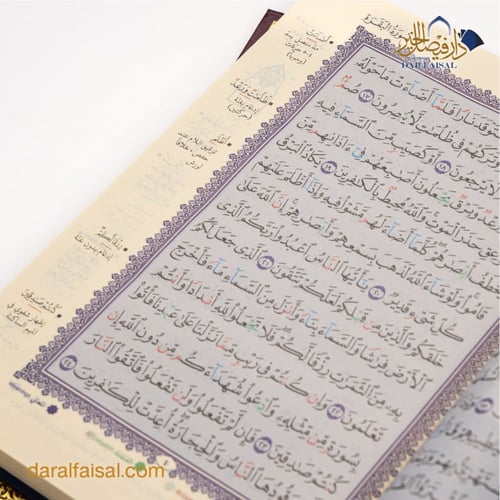 سورة البقرة
دار فيصل الخير
DAR FAISAL
ٱسۡتَوۡقَدَ نَارٗا فَلَمَّآ أَضَآءَتۡ مَا حَوۡلَهُۥ
وَتَرَكَهُمۡ فِي ظُلُمَٰتٖ لَّا يُبۡصِرُونَ ١٧ صُمُّۢ
لَا يَرۡجِعُونَ ١٨ أَوۡ كَصَيِّبٖ مِّنَ ٱلسَّمَآءِ فِيهِ
وَرَعۡدٞ وَبَرۡقٞ يَجۡعَلُونَ أَصَٰبِعَهُمۡ فِيٓ ءَاذَانِهِم مِّنَ
حَذَرَ ٱلۡمَوۡتِۚ وَٱللَّهُ مُحِيطُۢ بِٱلۡكَٰفِرِينَ ١٩ يَكَادُ ٱلۡبَرۡقُ
أَبۡصَٰرَهُمۡۖ كُلَّمَآ أَضَآءَ لَهُم مَّشَوۡاْ فِيهِ وَإِذَآ أَظۡلَمَ عَلَيۡهِمۡ
قَامُواْۚ وَلَوۡ شَآءَ ٱللَّهُ لَذَهَبَ بِسَمۡعِهِمۡ وَأَبۡصَٰرِهِمۡۚ إِنَّ ٱللَّهَ عَلَىٰ
كُلِّ شَيۡءٖ قَدِيرٞ ٢٠ يَٰٓأَيُّهَا ٱلنَّاسُ ٱعۡبُدُواْ رَبَّكُمُ ٱلَّذِي
خَلَقَكُمۡ وَٱلَّذِينَ مِن قَبۡلِكُمۡ لَعَلَّكُمۡ تَتَّقُونَ ٢١ ٱلَّذِي جَعَلَ لَكُمُ
ٱلۡأَرۡضَ فِرَٰشٗا وَٱلسَّمَآءَ بِنَآءٗ وَأَنزَلَ مِنَ ٱلسَّمَآءِ مَآءٗ فَأَخۡرَجَ
بِهِۦ مِنَ ٱلثَّمَرَٰتِ رِزۡقٗا لَّكُمۡۖ فَلَا تَجۡعَلُواْ لِلَّهِ أَندَادٗا وَأَنتُمۡ
تَعۡلَمُونَ ٢٢ وَإِن كُنتُمۡ فِي رَيۡبٖ مِّمَّا نَزَّلۡنَا عَلَىٰ عَبۡدِنَا فَأۡتُواْ
بِسُورَةٖ مِّن مِّثۡلِهِۦ وَٱدۡعُواْ شُهَدَآءَكُم مِّن دُونِ ٱللَّهِ إِن
كُنتُمۡ صَٰدِقِينَ ٢٣ فَإِن لَّمۡ تَفۡعَلُواْ وَلَن تَفۡعَلُواْ فَٱتَّقُواْ ٱلنَّارَ
ٱلَّتِي وَقُودُهَا ٱلنَّاسُ وَٱلۡحِجَارَةُۖ أُعِدَّتۡ لِلۡكَٰفِرِينَ ٢٤
daralfaisal.com